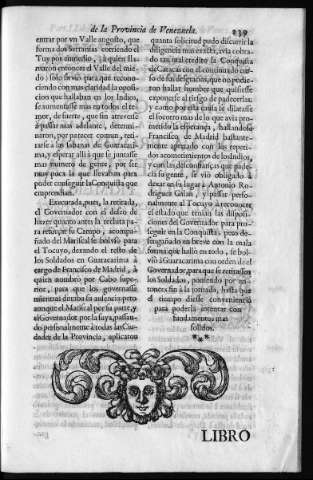 de la Provincia de Venezuela. 239
entrar por vn Valle angosto, que
forma dos Serranias corriendo el
Tuy por enmedio, (à quien lla-
maron entonces el Valle del mie-
do) solo sirviò para que recono-
ciendo con mas claridad la oposi-
cion que hallaban en los Indios,
se aumentasse mas en todos el te-
mor, de suerte, que sin atreverse
à passar mas adelante, determi-
naron, por parecer comun, reti-
rarse à las sabanas de Guaracai-
ma, y esperar alli à que se juntasse
mas numero de gente, por ser
muy poca la que llevaban para
poder conseguir la Conquista que
emprendian.
Executada, pues, la retirada,
el Governador con el deseo de
hazer quanto antes la recluta pa-
ra reforçar su Campo, acompa-
ñado del Mariscal se bolviò para
el Tocuyo, dexando el resto de
los Soldados en Guaracaima à
cargo de Francisco de Madrid, à
quien nombrò por Cabo supe-
rior, para que los governasse
mientras duraba su ausencia; pero
aunque el Mariscal por su parte, y
el Governador por la suya, passan-
do personalmente à todas las Ciu-
dades de la Provincia, aplicaron
quanta solicitud pudo discurrir la
diligencia mas exacta, era la cobra-
do tan mal credito la Conquista
de Caracas con el continuado cur-
so de sus desgracias, que no pudie-
ron hallar hombre que quisiesse
exponerse al riesgo de padecerlas;
y como por esta causa se dilatasse
el socorro mas de lo que avia pro-
metido la esperança, hallandose
Francisco de Madrid bastante-
mente apretado con los repeti-
dos acontecimientos de los Indios,
y con las desconfianças que pade-
cia su gente, se viò obligado à
dexar en su lugar à Antonio Ro-
driguez Galan, y passar perso-
nalmente al Tocuyo à reconocer
el estado que tenian las disposi-
ciones del Governador para pro-
seguir en la Conquista; pero de-
sengañado en breve con la mala
forma que hallò en todo, se bol-
viò à Guaracaima con orden de el
Governador, para que se retirassen
los Soldados, poniendo por en-
tonces fin à la jornada, hasta que
el tiempo diesse conveniencia
para poderla intentar con
fundamentos mas
solidos.
***
LIBRO